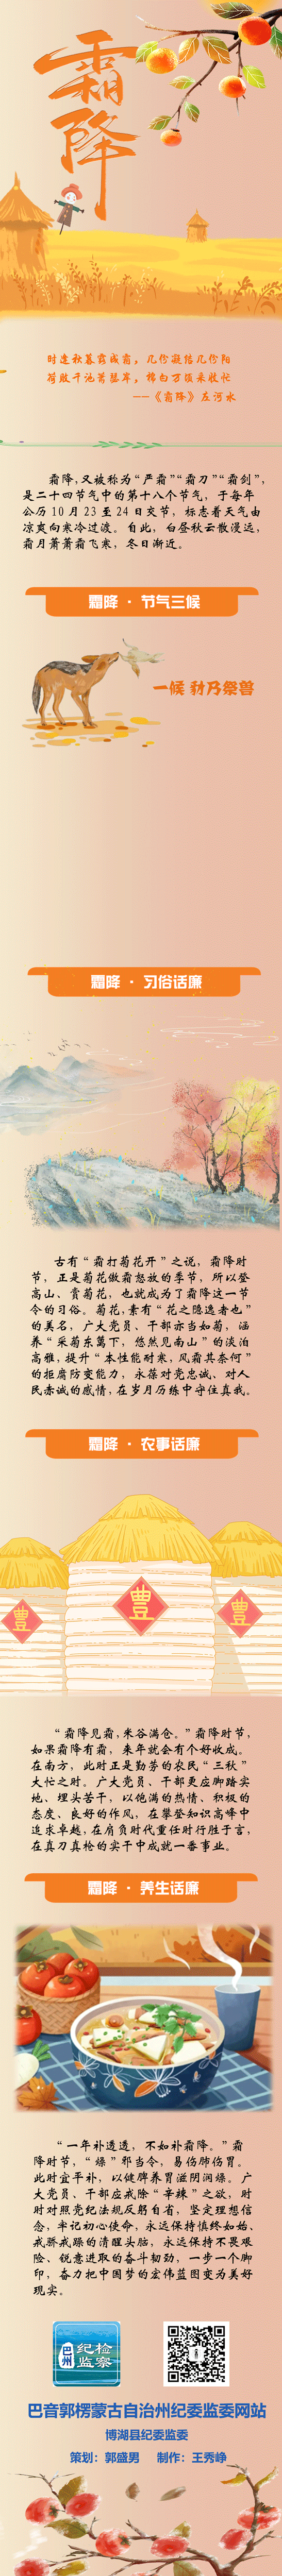 霜降
时逢秋暮露成霜，几份凝结几份阳
荷败千池萧瑟岸，棉白万顷采收忙
——《霜降》左河水
霜降，又被称为“严霜”“霜刀”“霜剑”，
是二十四节气中的第十八个节气，于每年
公历10月23至24日交节，标志着天气由
凉爽向寒冷过渡。自此，白昼秋云散漫远，
霜月萧萧霜飞寒，冬日渐近。
霜降 · 节气三候
一候 豺乃祭兽
霜降 · 习俗话廉
古有“霜打菊花开”之说，霜降时
节，正是菊花傲霜怒放的季节，所以登
高山、赏菊花，也就成为了霜降这一节
令的习俗。菊花，素有“花之隐逸者也”
的美名，广大党员、干部亦当如菊，涵
养“采菊东篱下，悠然见南山”的淡泊
高雅，提升“本性能耐寒，风霜其奈何”
的拒腐防变能力，永葆对党忠诚、对人
民赤诚的感情，在岁月历练中守住真我。
霜降 · 农事话廉
豐
豐
豐
“霜降见霜，米谷满仓。”霜降时节，
如果霜降有霜，来年就会有个好收成。
在南方，此时正是勤劳的农民“三秋”
大忙之时。广大党员、干部更应脚踏实
地、埋头苦干，以饱满的热情、积极的
态度、良好的作风，在攀登知识高峰中
追求卓越，在肩负时代重任时行胜于言，
在真刀真枪的实干中成就一番事业。
霜降 · 养生话廉
“一年补透透，不如补霜降。”霜
降时节，“燥”邪当令，易伤肺伤胃。
此时宜平补，以健脾养胃滋阴润燥。广
大党员、干部应戒除“辛辣”之欲，时
时对照党纪法规反躬自省，坚定理想信
念，牢记初心使命，永远保持慎终如始、
戒骄戒躁的清醒头脑，永远保持不畏艰
险、锐意进取的奋斗韧劲，一步一个脚
印，奋力把中国梦的宏伟蓝图变为美好
现实。
巴州
纪检
监察
巴音郭楞蒙古自治州纪委监委网站
博湖县纪委监委
策划：郭盛男 制作：王秀峥